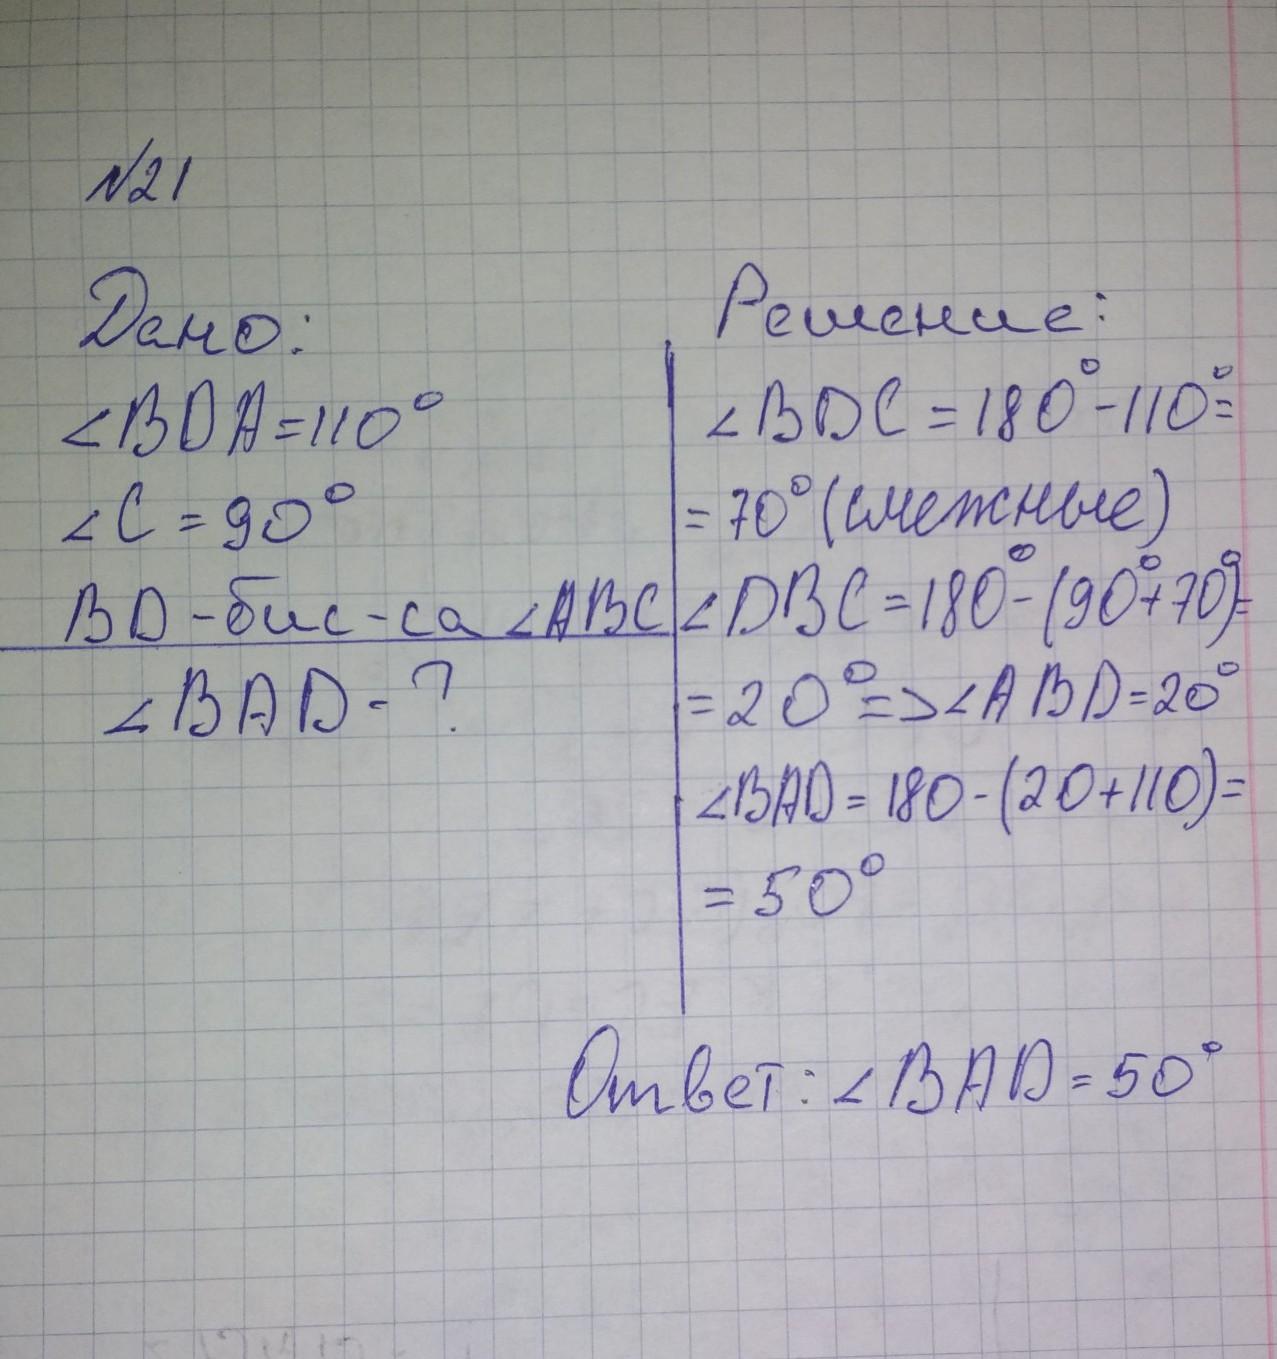 №21
Дано:
∠BDA=110°
∠C=90°
BD-бис-са ∠ABC
∠BAD-?
Решение:
∠BDC=180°-110°=
=70°(смежные)
∠DBC=180°-(90°+70°)=
=20°=>∠ABD=20°
∠BAD=180-(20+110)=
=50°
Ответ: ∠BAD=50°